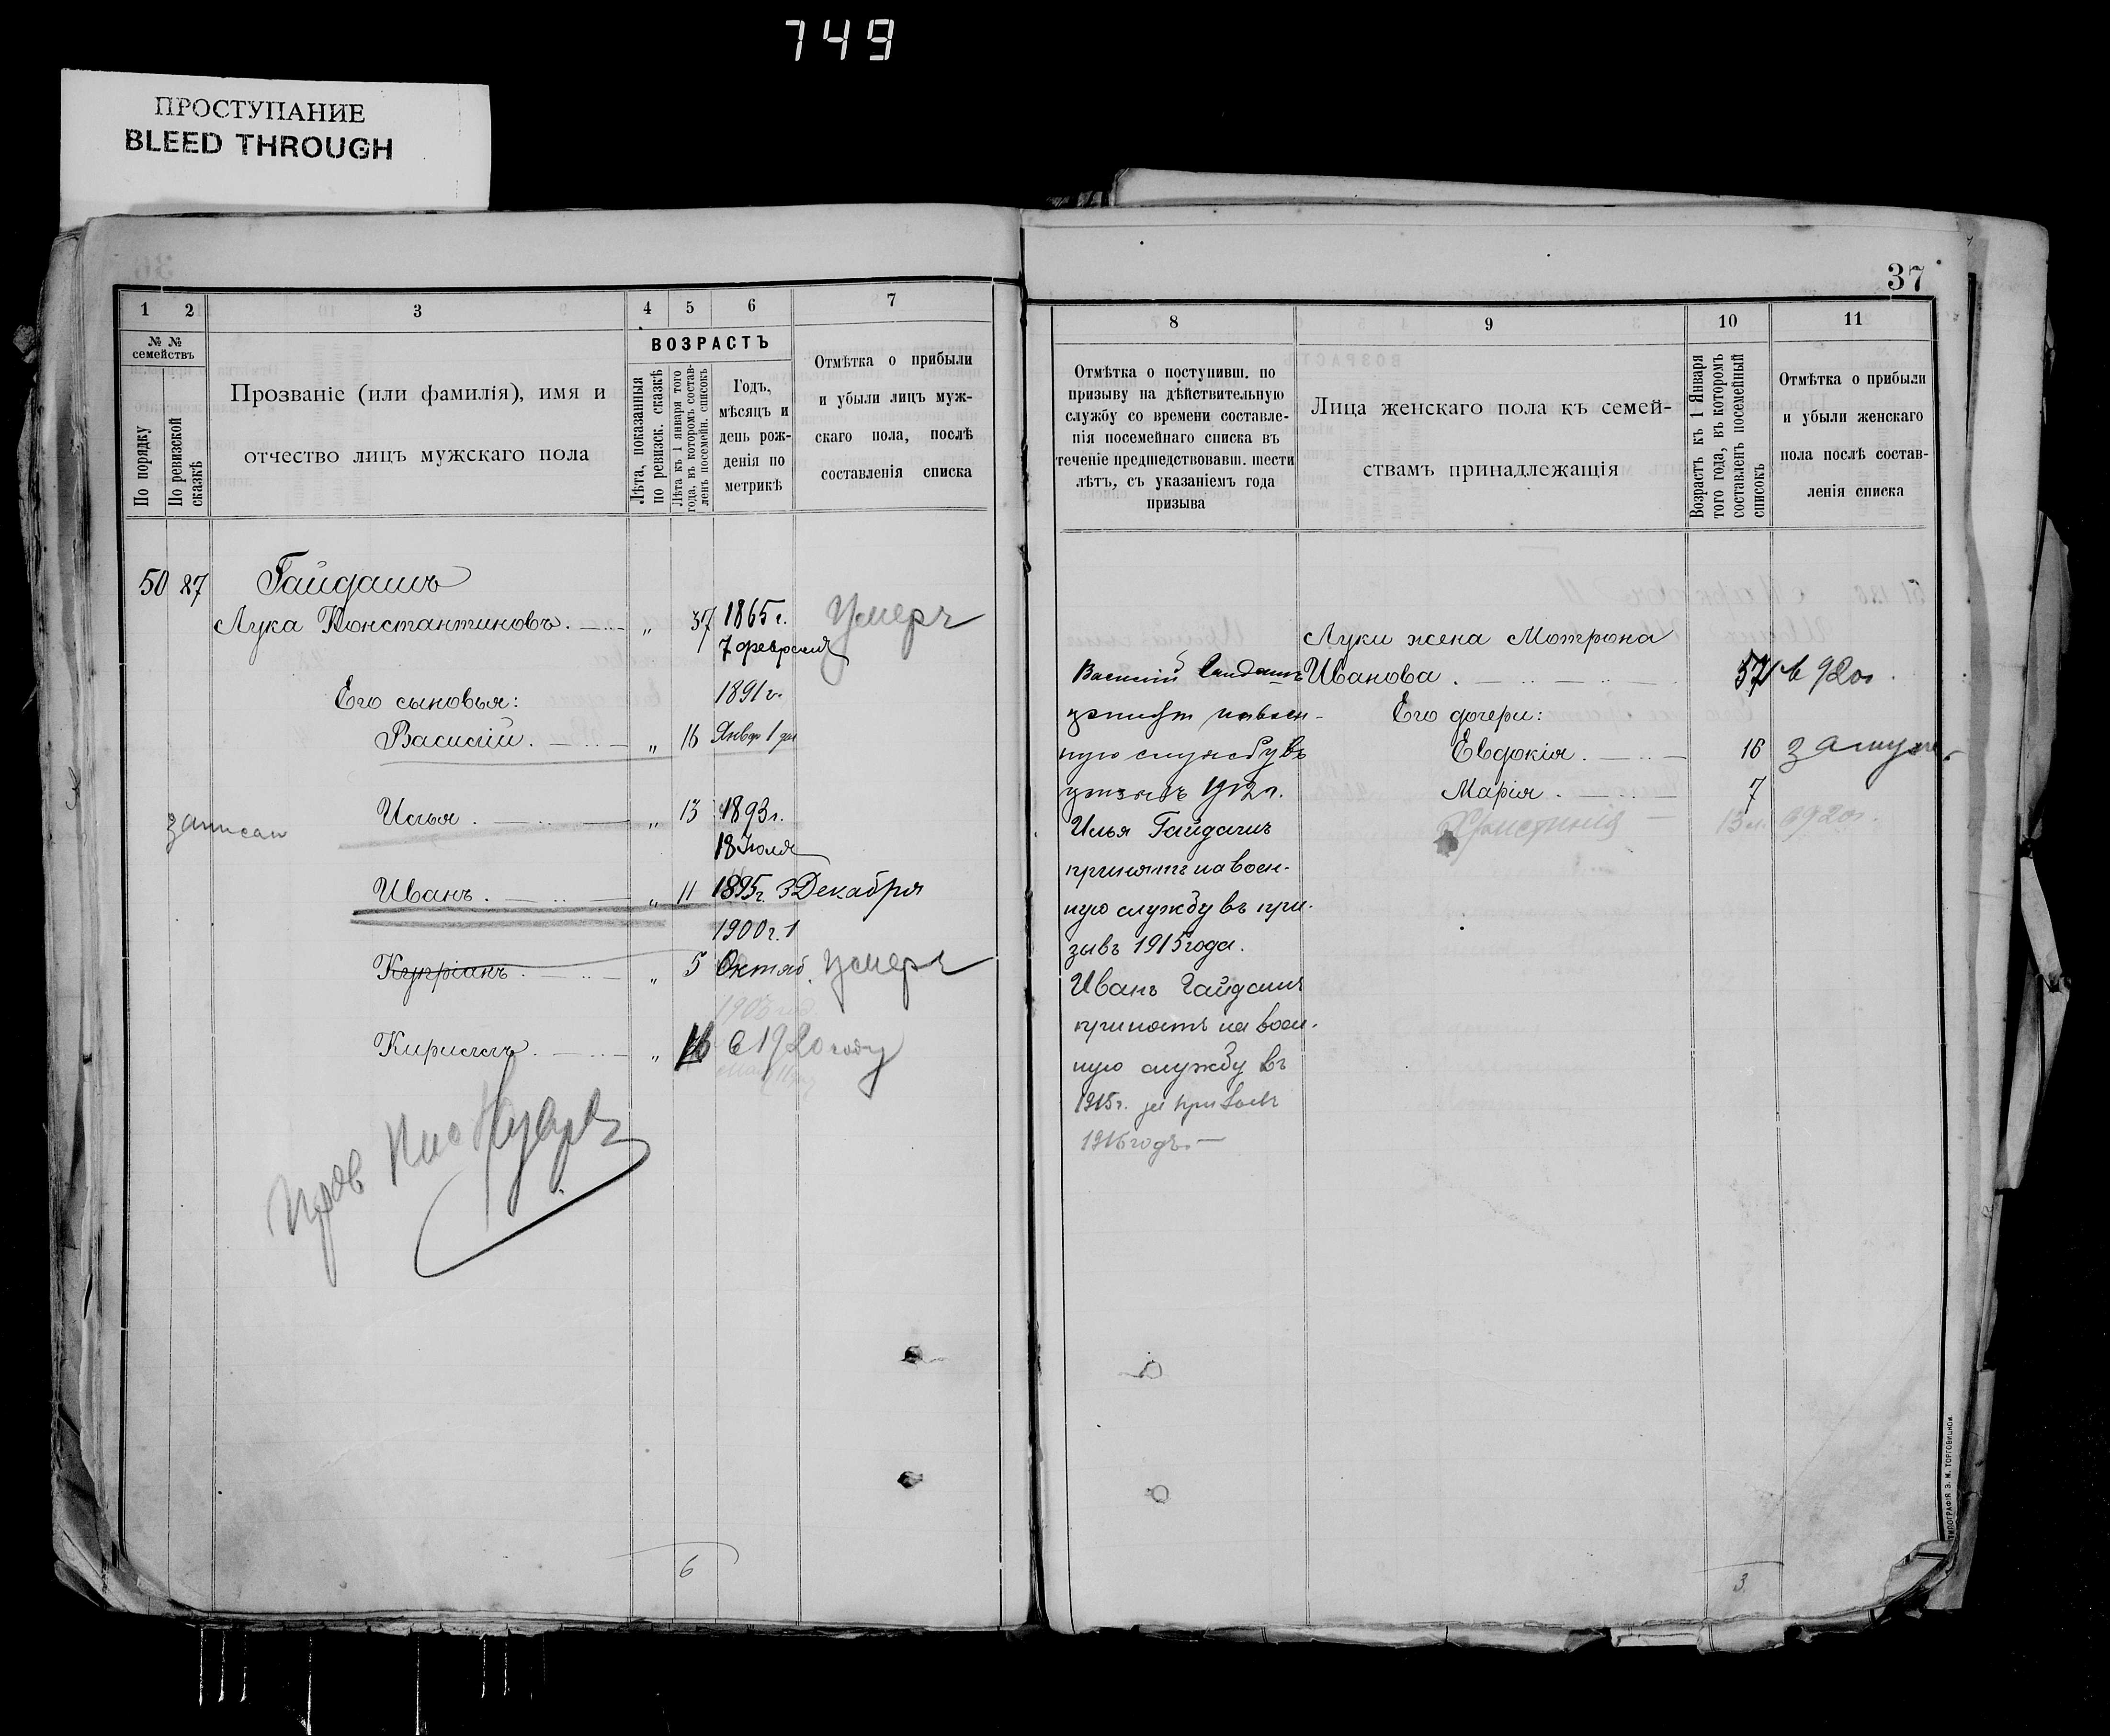 749
ПРОСТУПАНИЕ
BLEED THROUGH
1 2 3 4 5 6 7
№ № семействъ
По порядку
По ревизской сказкѣ
Прозваніе (или фамилія), имя и
отчество лицъ мужскаго пола
ВОЗРАСТЪ
Лѣта, показанныя
по ревизск. сказкѣ
Лѣта къ 1 января того
года, въ которомъ состав-
ленъ посемейн. списокъ
Годъ,
мѣсяцъ и
день рож-
денія по
метрикѣ
Отмѣтка о прибыли
и убыли лицъ муж-
скаго пола, послѣ
составленія списка
50 87 Гайдашъ
Лука Константиновъ. „ 37 1865 г. Умеръ
7 февраля
Его сыновья: 1891 г.
Василій. „ 16 Январ 1 дня
Илья. „ 13 1893 г.
записан
18 Іюля
Иванъ. „ 11 1895 г. 3 Декабря
1900 г. 1
Купріянъ. „ 5 Октяб. умеръ
Кириллъ. „ 16 в 1920 году
6
37
8 9 10 11
Отмѣтка о поступивш. по
призыву на дѣйствительную
службу со времени составле-
нія посемейнаго списка въ
теченіе предшедствовавш. шести
лѣтъ, съ указаніемъ года
призыва
Лица женскаго пола къ семей-
ствамъ принадлежащія
Возрастъ къ 1 Января
того года, въ которомъ
составленъ посемейный
списокъ
Отмѣтка о прибыли
и убыли женскаго
пола послѣ состав-
ленія списка
Луки жена Мотрона
Василій Гайдашъ Иванова. 57 в 920 г.
принят на воен- Его дочери:
ную службу въ Евдокія. 16 замуж
1912 г. Марія. 7
Илья Гайдашъ Христинія 13 л. 920 г.
принятъ на воен-
ную службу въ при-
зывъ 1915 года.
Иванъ Гайдашъ
принятъ на воен-
ную службу въ
1915 г. за призывъ
1916 годъ.
3
ТИПОГРАФІЯ З. М. ТОРГОВИЦКОЙ.